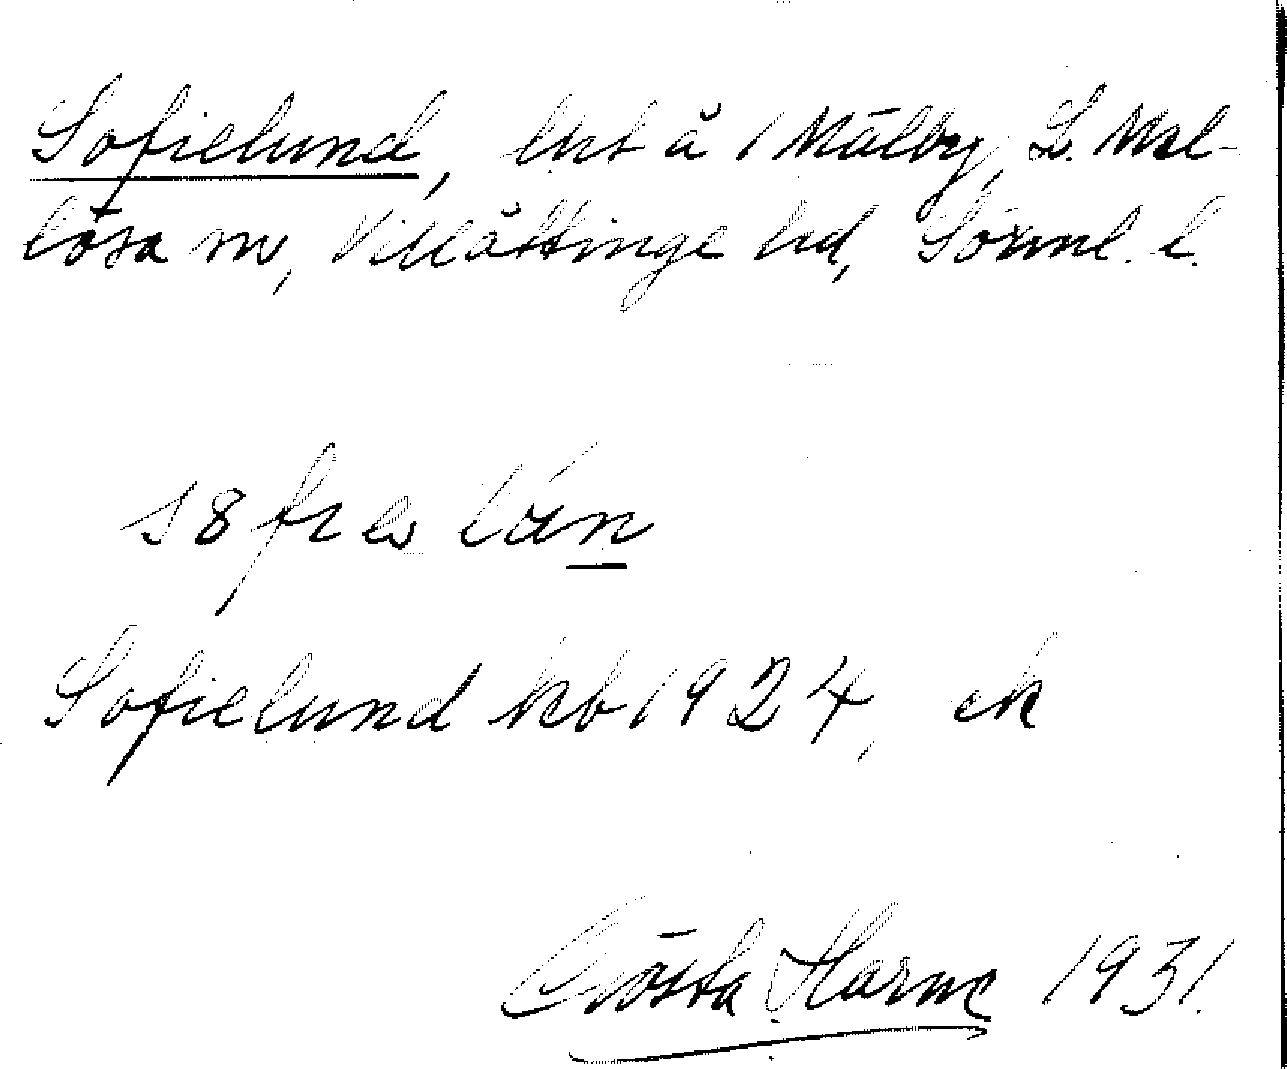 Sofielund, lht å 1 Mälby, L. Mel-
lösa sn, Villåttinge hd, Sörml. l.
Sofielund kb 1924, ek
Gösta Harme 1931.